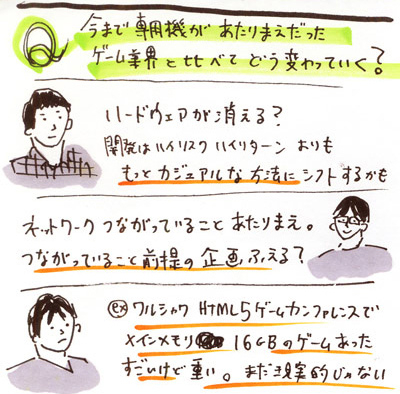 Q 今まで専用機があたりまえだった
ゲーム業界と比べてどう変わっていく?
ハードウェアが消える?
開発はハイリスクハイリターンよりも
もっとカジュアルな方法にシフトするかも
ネットワークつながっていることあたりまえ。
つながっていること前提の企画ふえる?
ex ワルシャワ HTML5ゲームカンファレンスで
メインメモリ 16GBのゲームあった
すごいけど重い。まだ現実的じゃない